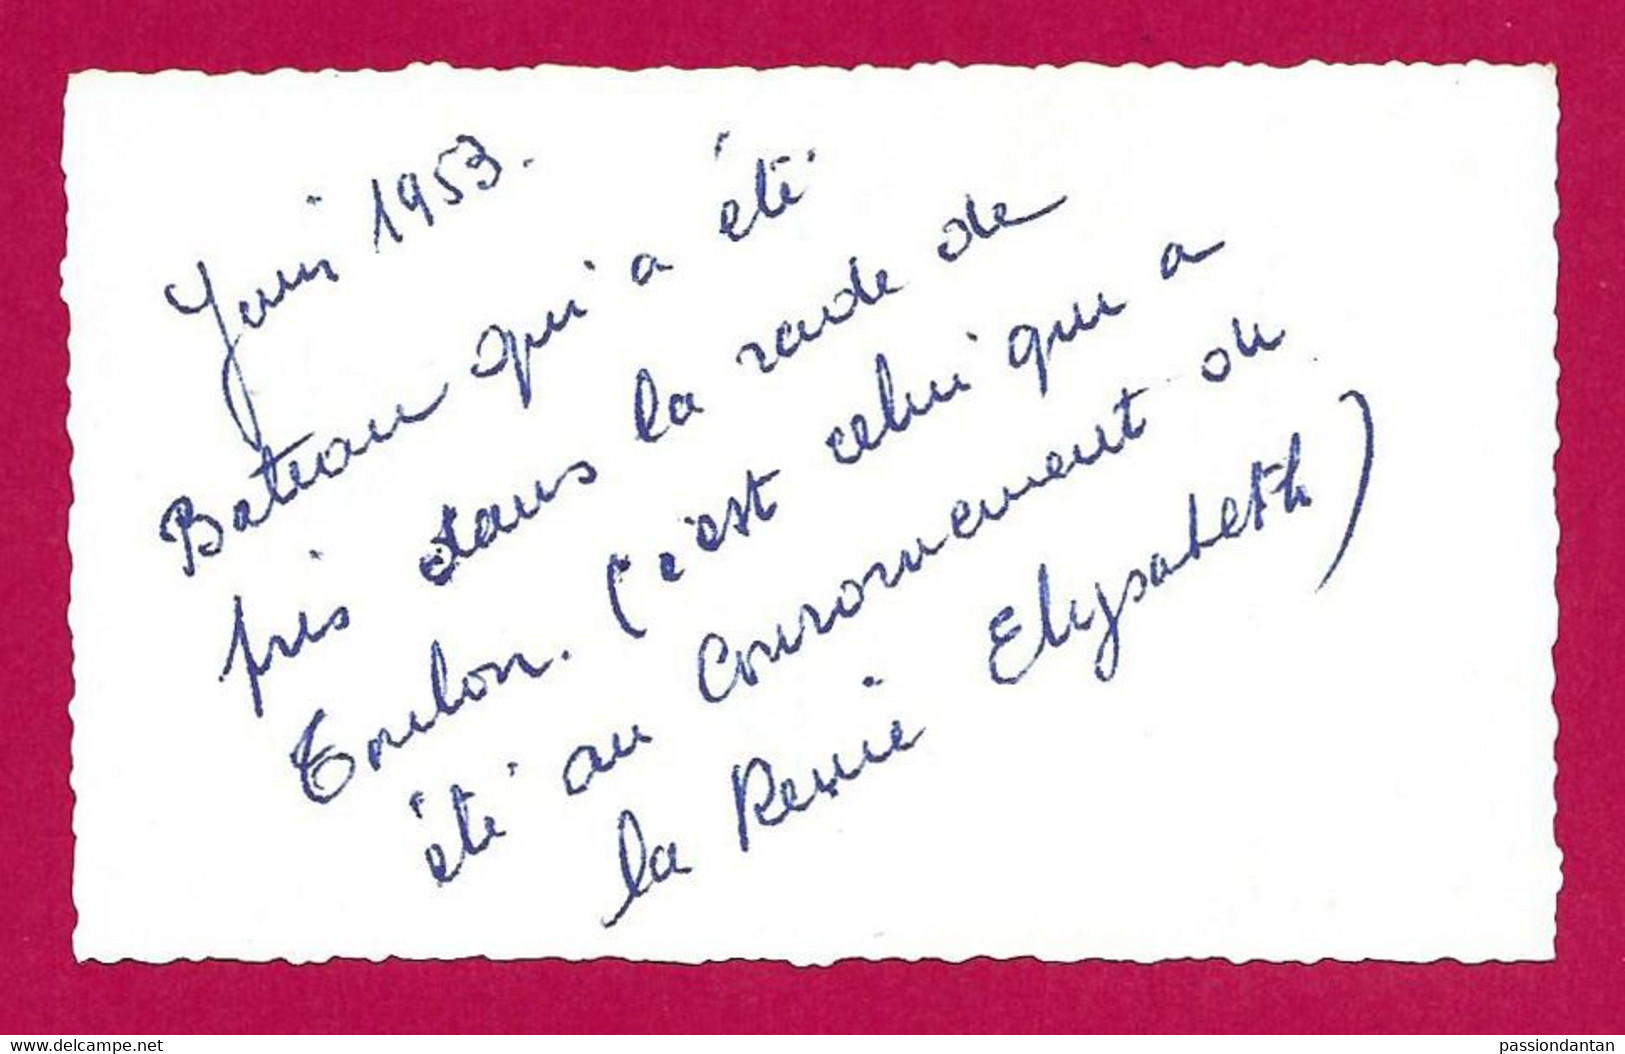 Juin 1953.
Bateau qui a été
pris dans la rade de
Toulon. (c'est celui qui a
été au couronnement de
la Reine Elysabeth)
www.delcampe.net
passiondantan